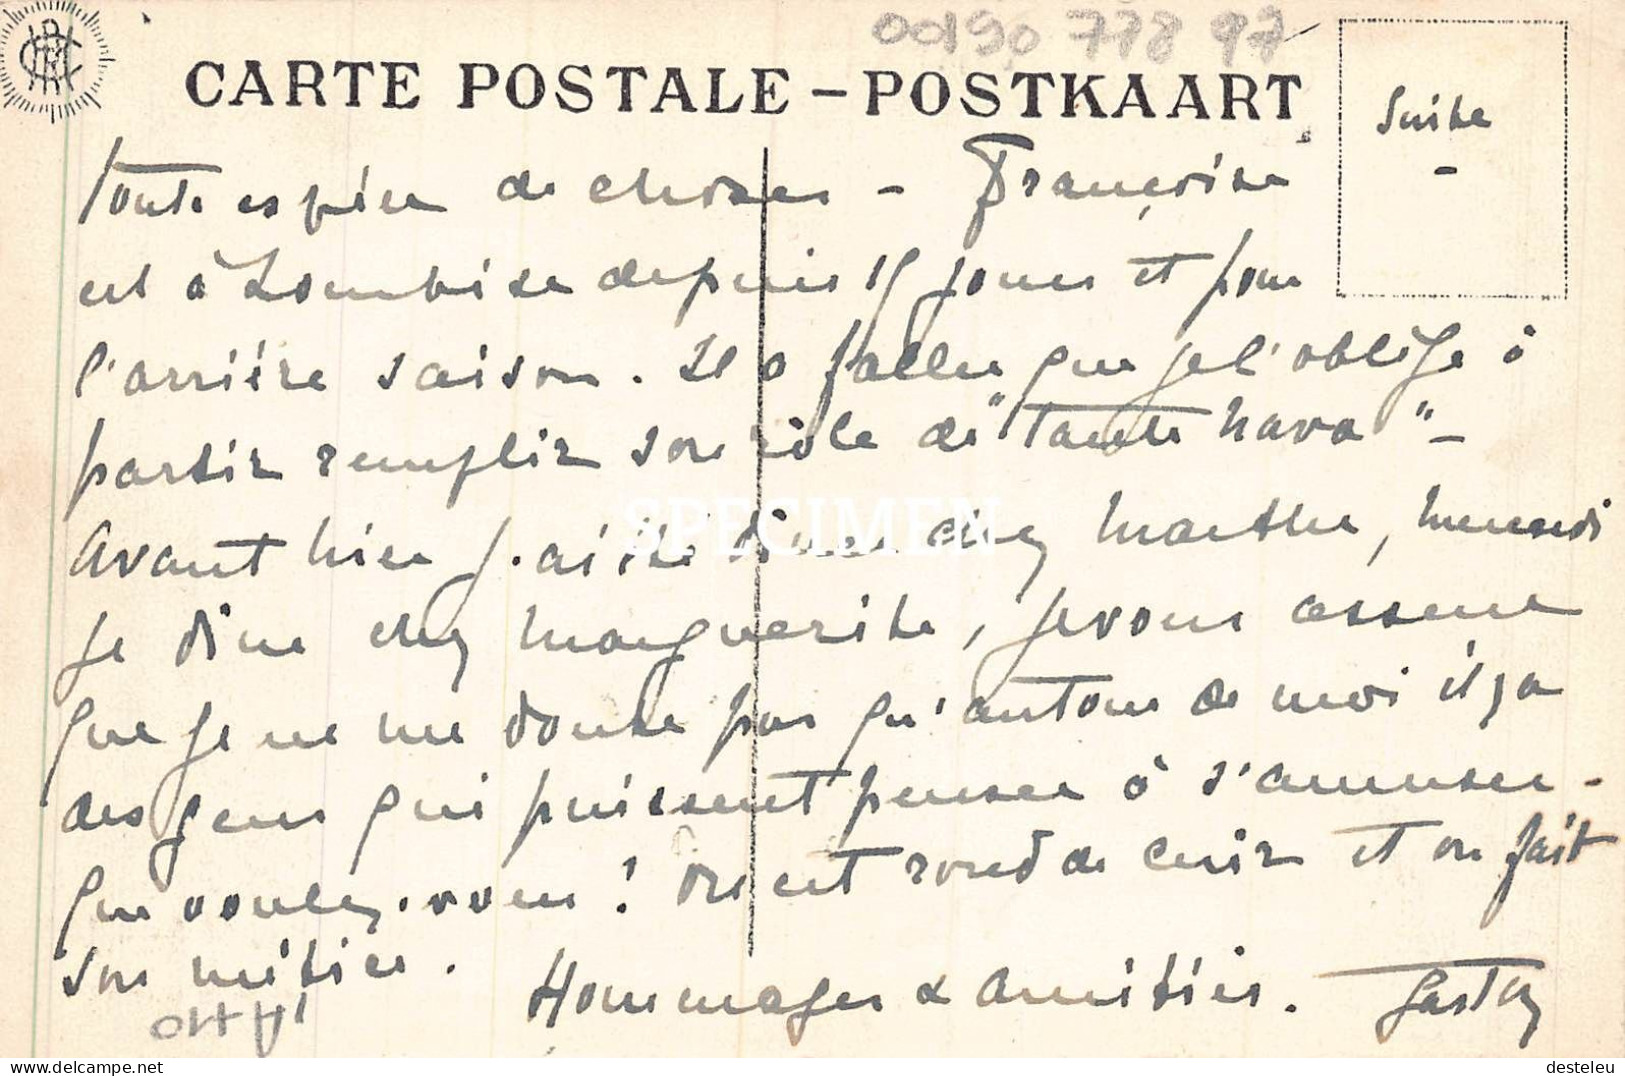 00190 778 97
CARTE POSTALE - POSTKAART
Suite
-
toute espèce de choses - Françoise
est à Lombise depuis 15 jours et pour
l'arrière saison. Il a fallu que je l'oblige à
partir remplir son rôle de "tante Nava" -
Avant hier j'ai été dîner chez Marthe, mercredi
je dîne chez Marguerite, je vous assure
que je ne me doute pas qu'autour de moi il y a
des gens qui puissent penser à s'amuser -
Que voulez-vous ! On est rond de cuir et on fait
son métier.
Hommages & amitiés. Gaston
SPECIMEN
delcampe.net
desteleu